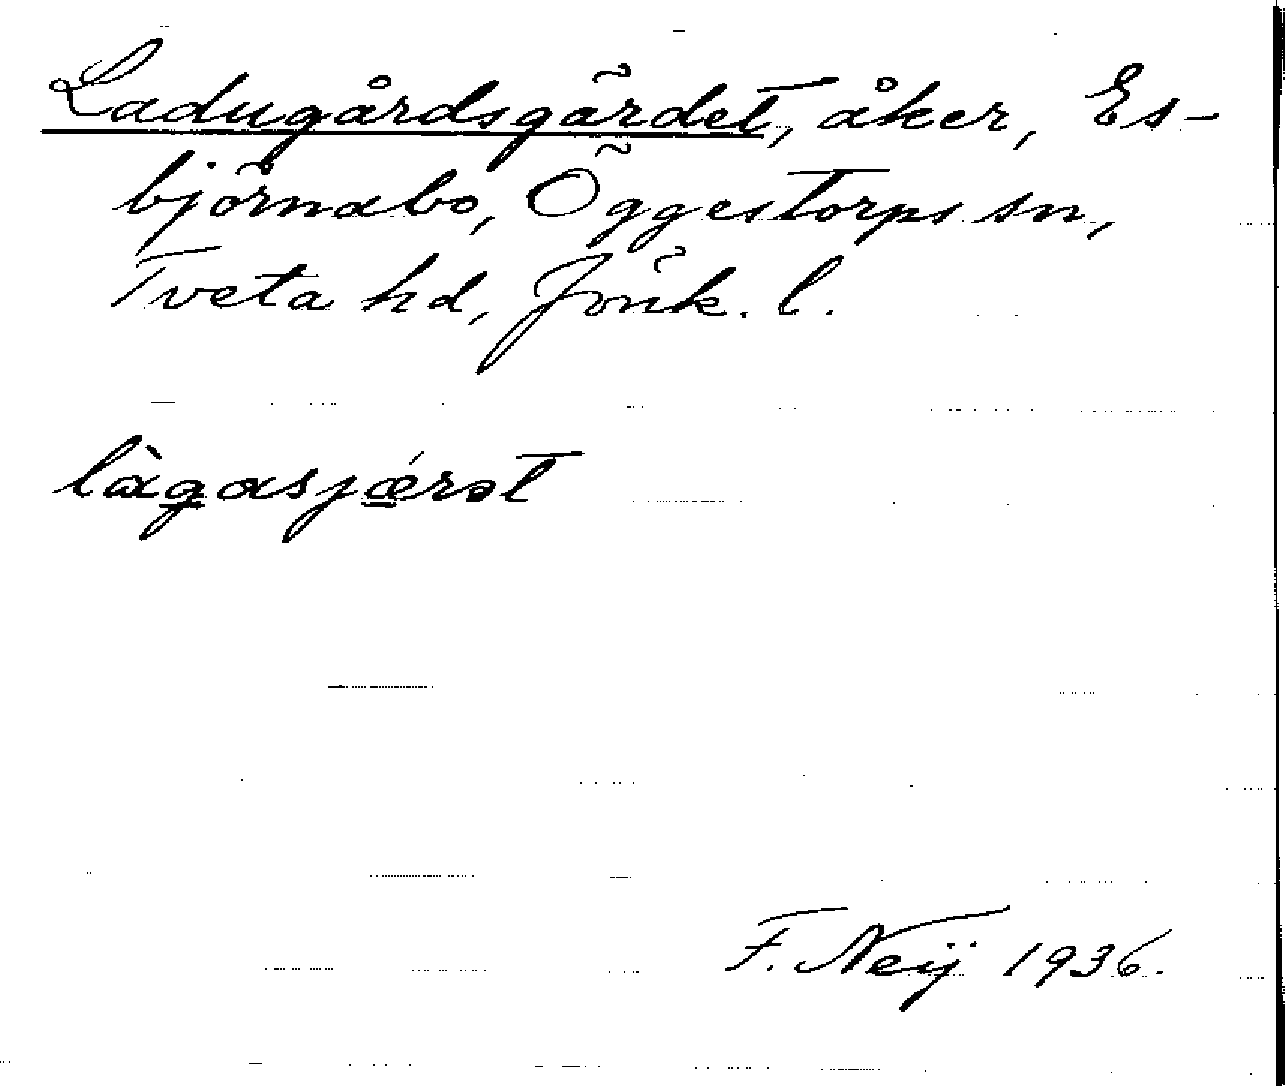 Ladugårdsgärdet, åker, Es-
björnabo, Öggestorps sn,
Tveta hd, Jönk. l.
làgasjǽrət
F. Neij 1936.